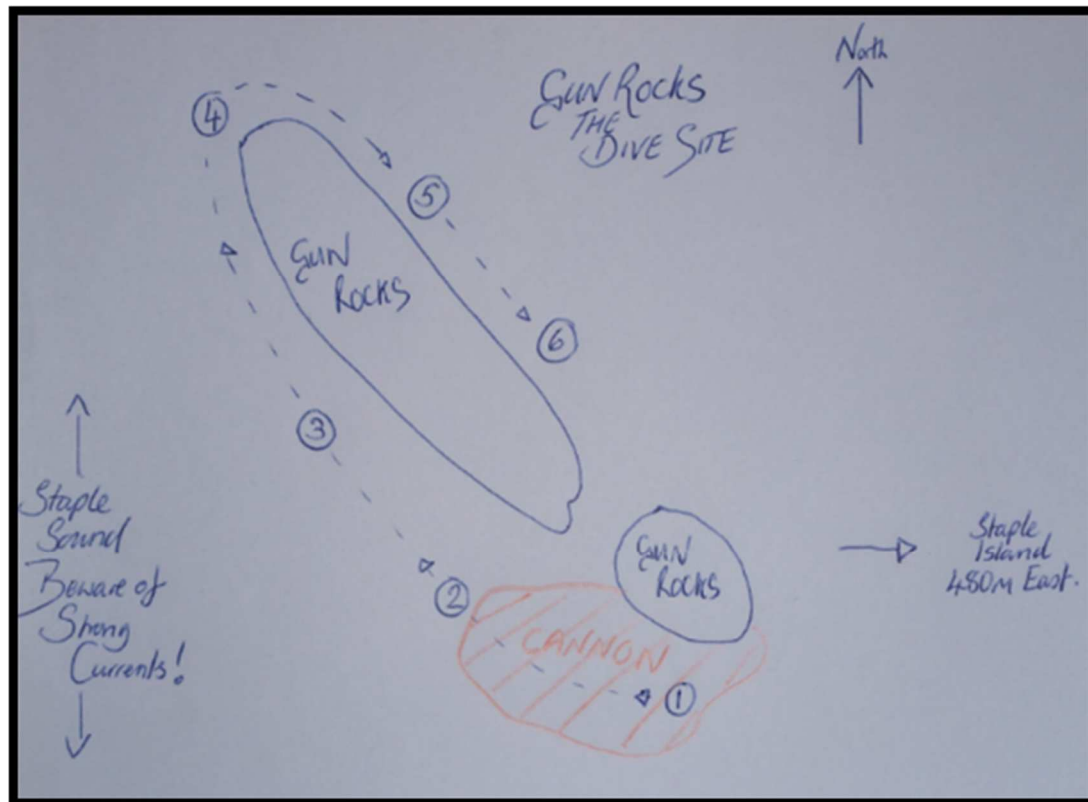 North
GUN ROCKS
THE
DIVE SITE
4
5
GUN
ROCKS
6
3
Staple
Sound
Beware of
Strong
Currents!
GUN
ROCKS
Staple
Island
480m East.
2
CANNON
1